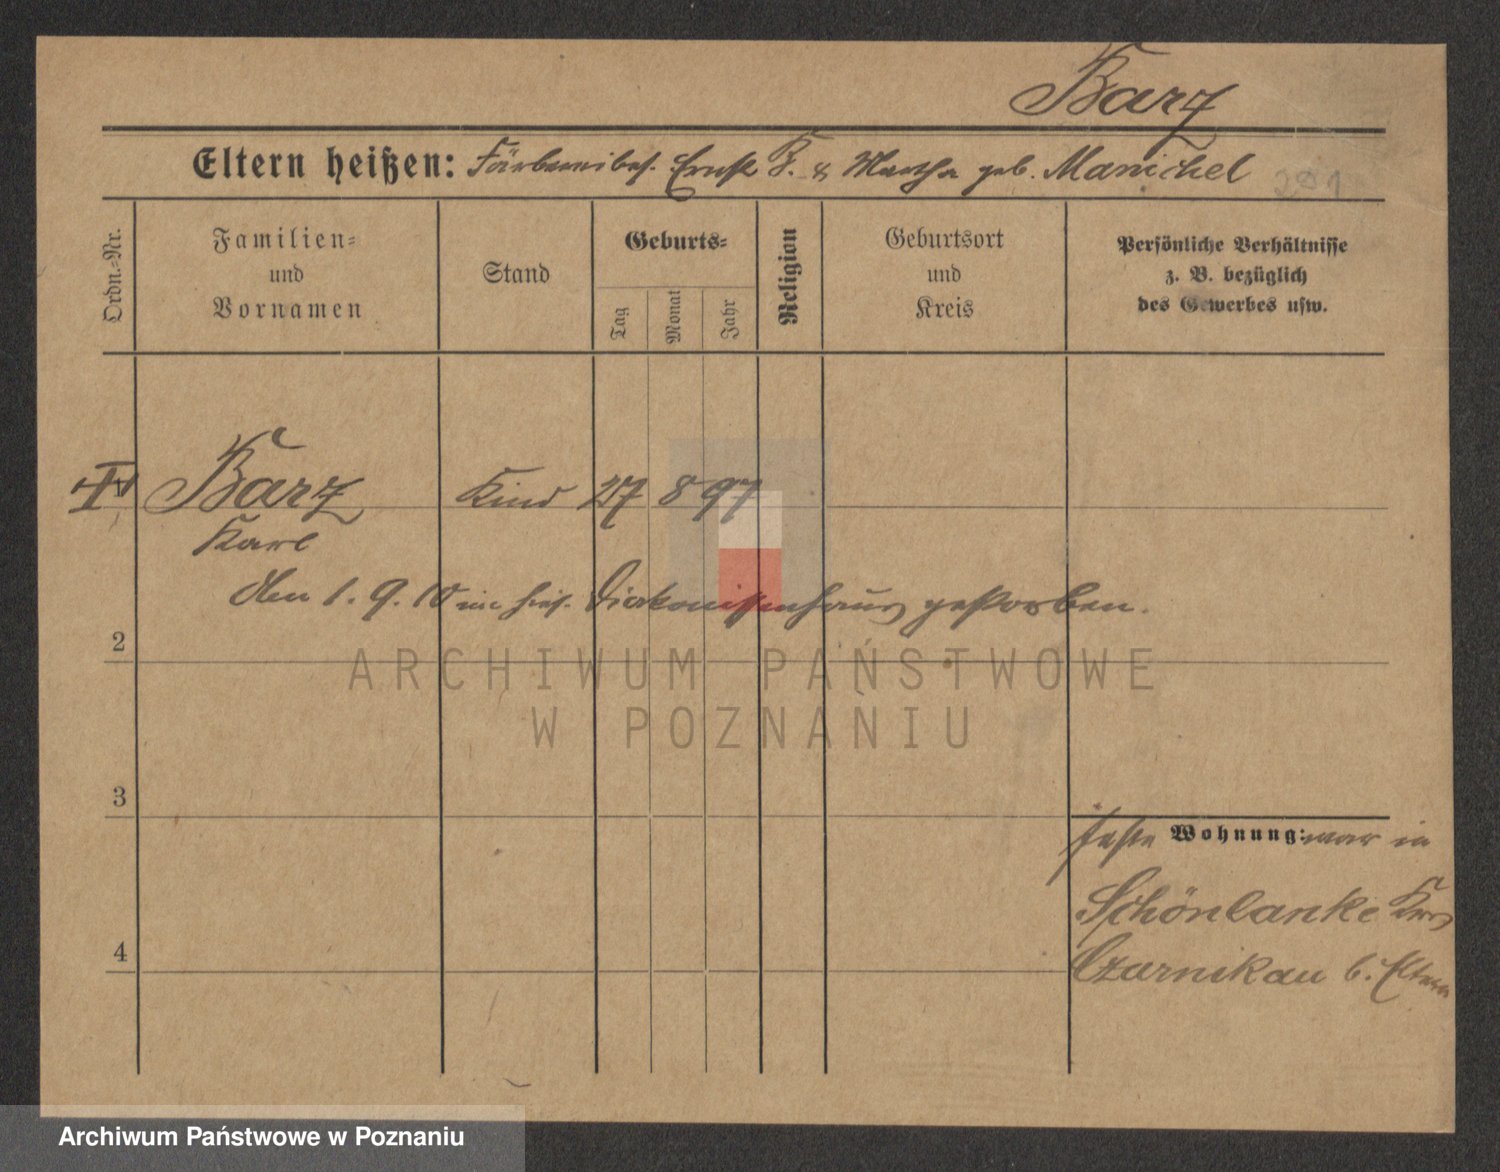 Barz
Eltern heißen: Färbereibes. Ernst B. & Martha geb. Manichel
291
Ordn.-Nr.
Familien-
und
Vornamen
Stand
Geburts-
Tag
Monat
Jahr
Religion
Geburtsort
und
Kreis
Persönliche Verhältnisse
z. B. bezüglich
des Gewerbes usw.
Barz Kind 27 8 97
Karl
den 1. 9. 10 im hies. Diakonissenhaus gestorben.
2
ARCHIWUM PAŃSTWOWE
W POZNANIU
3
feste Wohnung: war in
Schönlanke Krs
4
Czarnikau b. Eltern
Archiwum Państwowe w Poznaniu